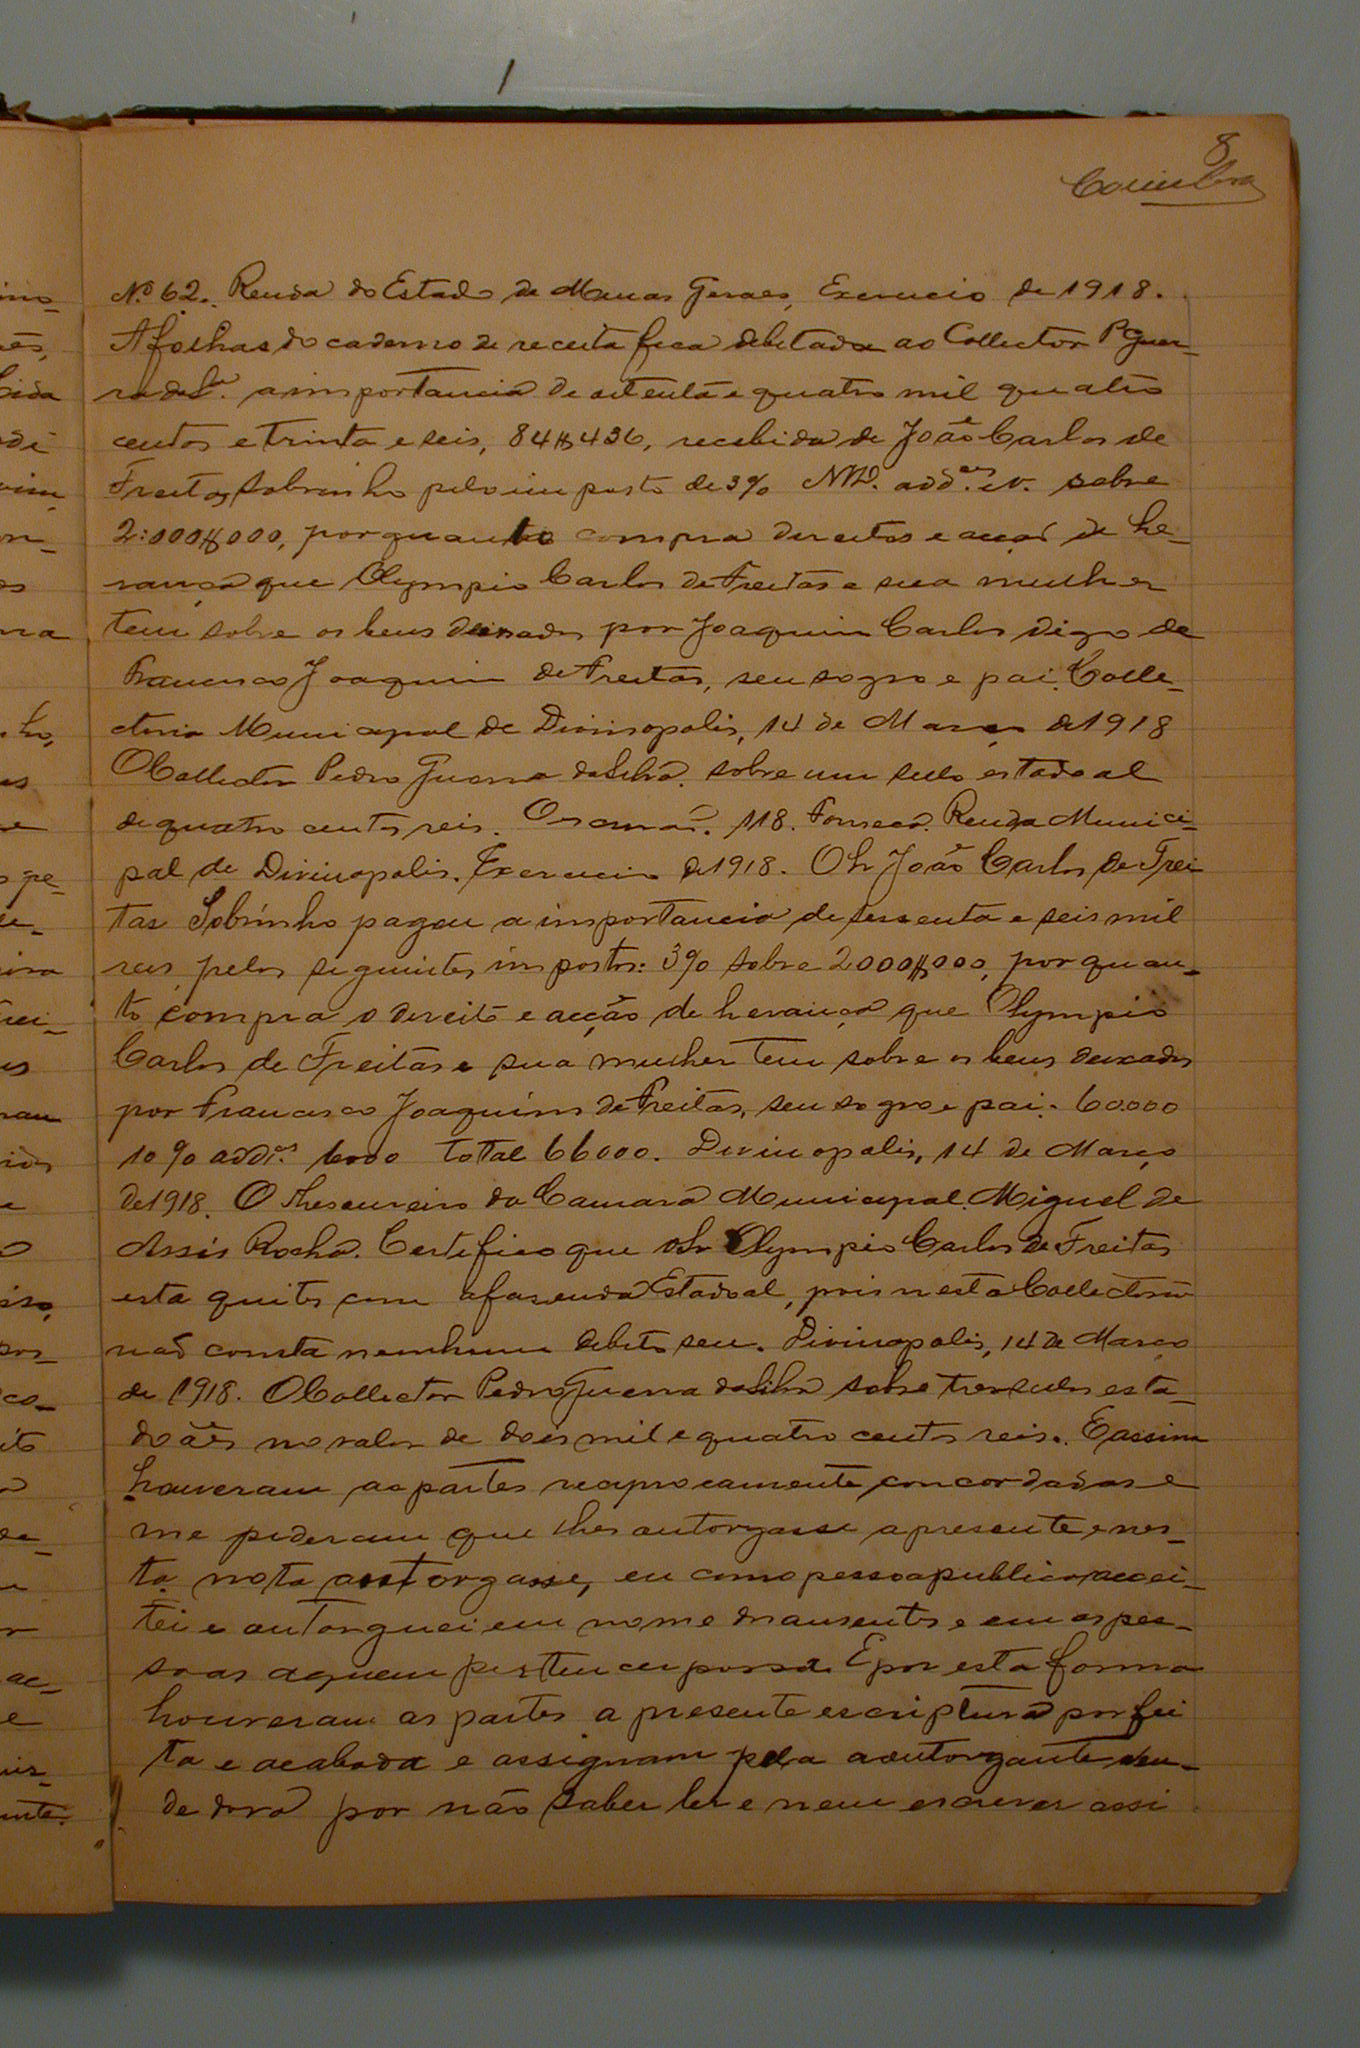 8
Coimbra
No 62. Renda do Estado de Minas Geraes, Exercicio de 1918.
A folhas do caderno de receita fica debitada ao Collector P Guer-
ra da Sa. a importancia de oitenta e quatro mil quatro
centos e trinta e seis, 84$436, recebida de João Carlos de
Freitas Sobrinho pelo imposto de 3% sobre
2:000$000, porquanto compra direitos e acção de he-
rança que Olympio Carlos de Freitas e sua mulher
tem sobre os bens deixados por Joaquim Carlos digo de
Francisco Joaquim de Freitas, seu sogro e pai. Colle-
ctoria Municipal de Divinopolis, 14 de Março de 1918
O Collector Pedro Guerra da Silva. sobre um sello estadoal
de quatro centos reis. O escrivão. 118. Fonseca. Renda Munici-
pal de Divinopolis. Exercicio de 1918. O Sr João Carlos de Frei
tas Sobrinho pagou a importancia de sessenta e seis mil
reis, pelos seguintes impostos: 3% sobre 2000$000, por quan-
to compra o direito e acção de herança que Olympio
Carlos de Freitas e sua mulher tem sobre os bens deixados
por Francisco Joaquim de Freitas, seu sogro e pai. 60.000
10% addes. 6000 total 66000. Divinopolis, 14 de Março
de 1918. O Thesoureiro da Camara Municipal. Miguel de
Assis Rocha. Certifico que o Sr Olympio Carlos de Freitas
esta quites com a fasenda Estadoal, pois nesta Collectoria
não consta nemhum debito seu. Divinopolis, 14 de Março
de 1918. O Collector Pedro Guerra da Silva sobre tres sellos esta-
doães no valor de dois mil e quatro centos reis. E assim
houveram as partes reciprocamente concordadas e
me pederam que lhes outorgasse a presente e nes-
ta nota outorgasse, eu como pessoa publica accei-
tei e outorguei em nome dos ausentes e em as pes-
soas aquem pertencer possa. E por esta forma
houveram as partes a presente escriptura por fei
ta e acabada e assignam pela a outorgante ven-
dedora por não saber ler e nem escrever assi